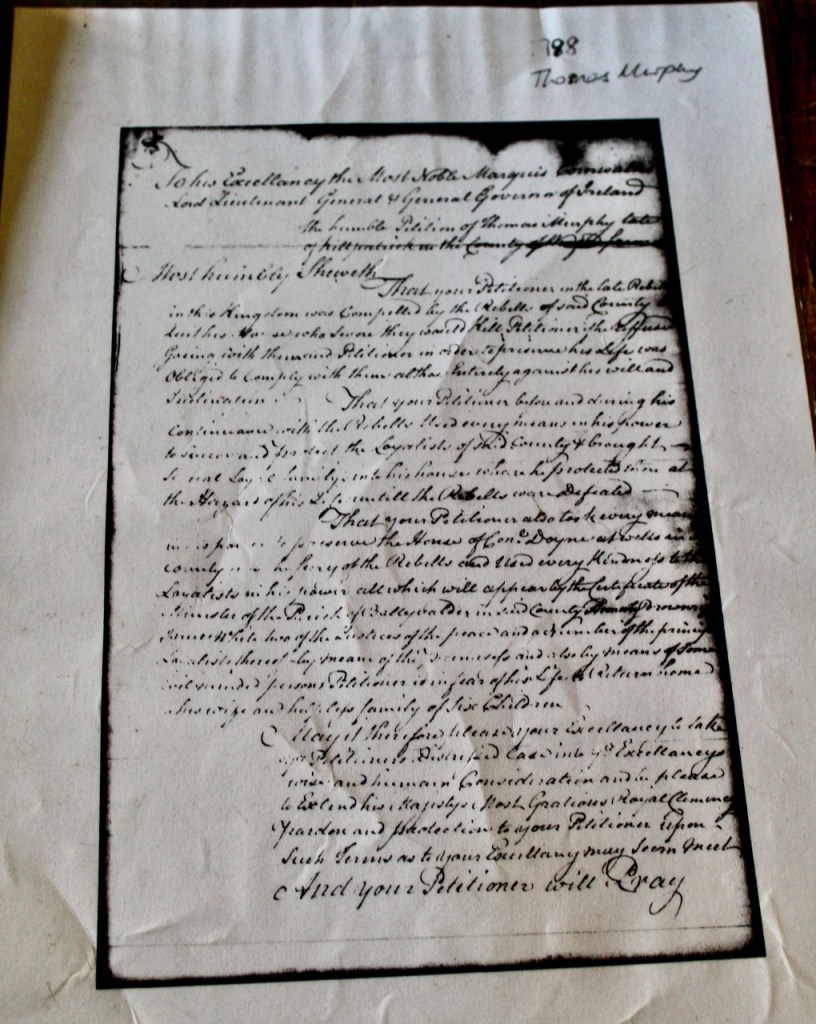 798
Thomas Murphy
To his Excellancy the Most Noble Marquis Cornwallis
Lord Lieutenant General & General Governor of Ireland
the humble Petition of Thomas Murphy late
of Kilpatrick in the County of
Most humbly Sheweth
That your Petitioner in the late Rebel
in this Kingdom was Compelled by the Rebells of said County
his House who Swore they would Kill Petitioner if he Reffused
Goeing with them and Petitioner in order to preserve his Life was
Obliged to Comply with them althoe Entirely against his will and
Inclination That your Petitioner before and during his
Continuance with the Rebells Used every means in his power
to succor and Protect the Loyalists of Said County & brought
Loyal family into his house where he protected them at
the Hazard of his Life untill the Rebells were Defeated
That your Petitioner also took every mean
in his power to preserve the House of Doyne at wells in
County the fury of the Rebells and Used every Kindness to the
Loyalists in his power all which will appear by the Certificate of the
Minister of the Parish of Ballyvalder in Said County
White two of the Justices of the peace and a Number of the
Loyalists thereof by means of and also by means of Some
evil minded persons Petitioner is in fear of his Life to Return home
to his wife and helpless family of Six Children
May it therefore please your Excellancy to take
Petitioners distressed Case into yr Excellancys
wise and humain Consideration and be pleased
to Extend his Majestys Most Gratious Royal Clemency
Pardon and protection to your Petitioner upon
Such Terms as to your Excellancy may Seem Meet
And your Petitioner will Pray